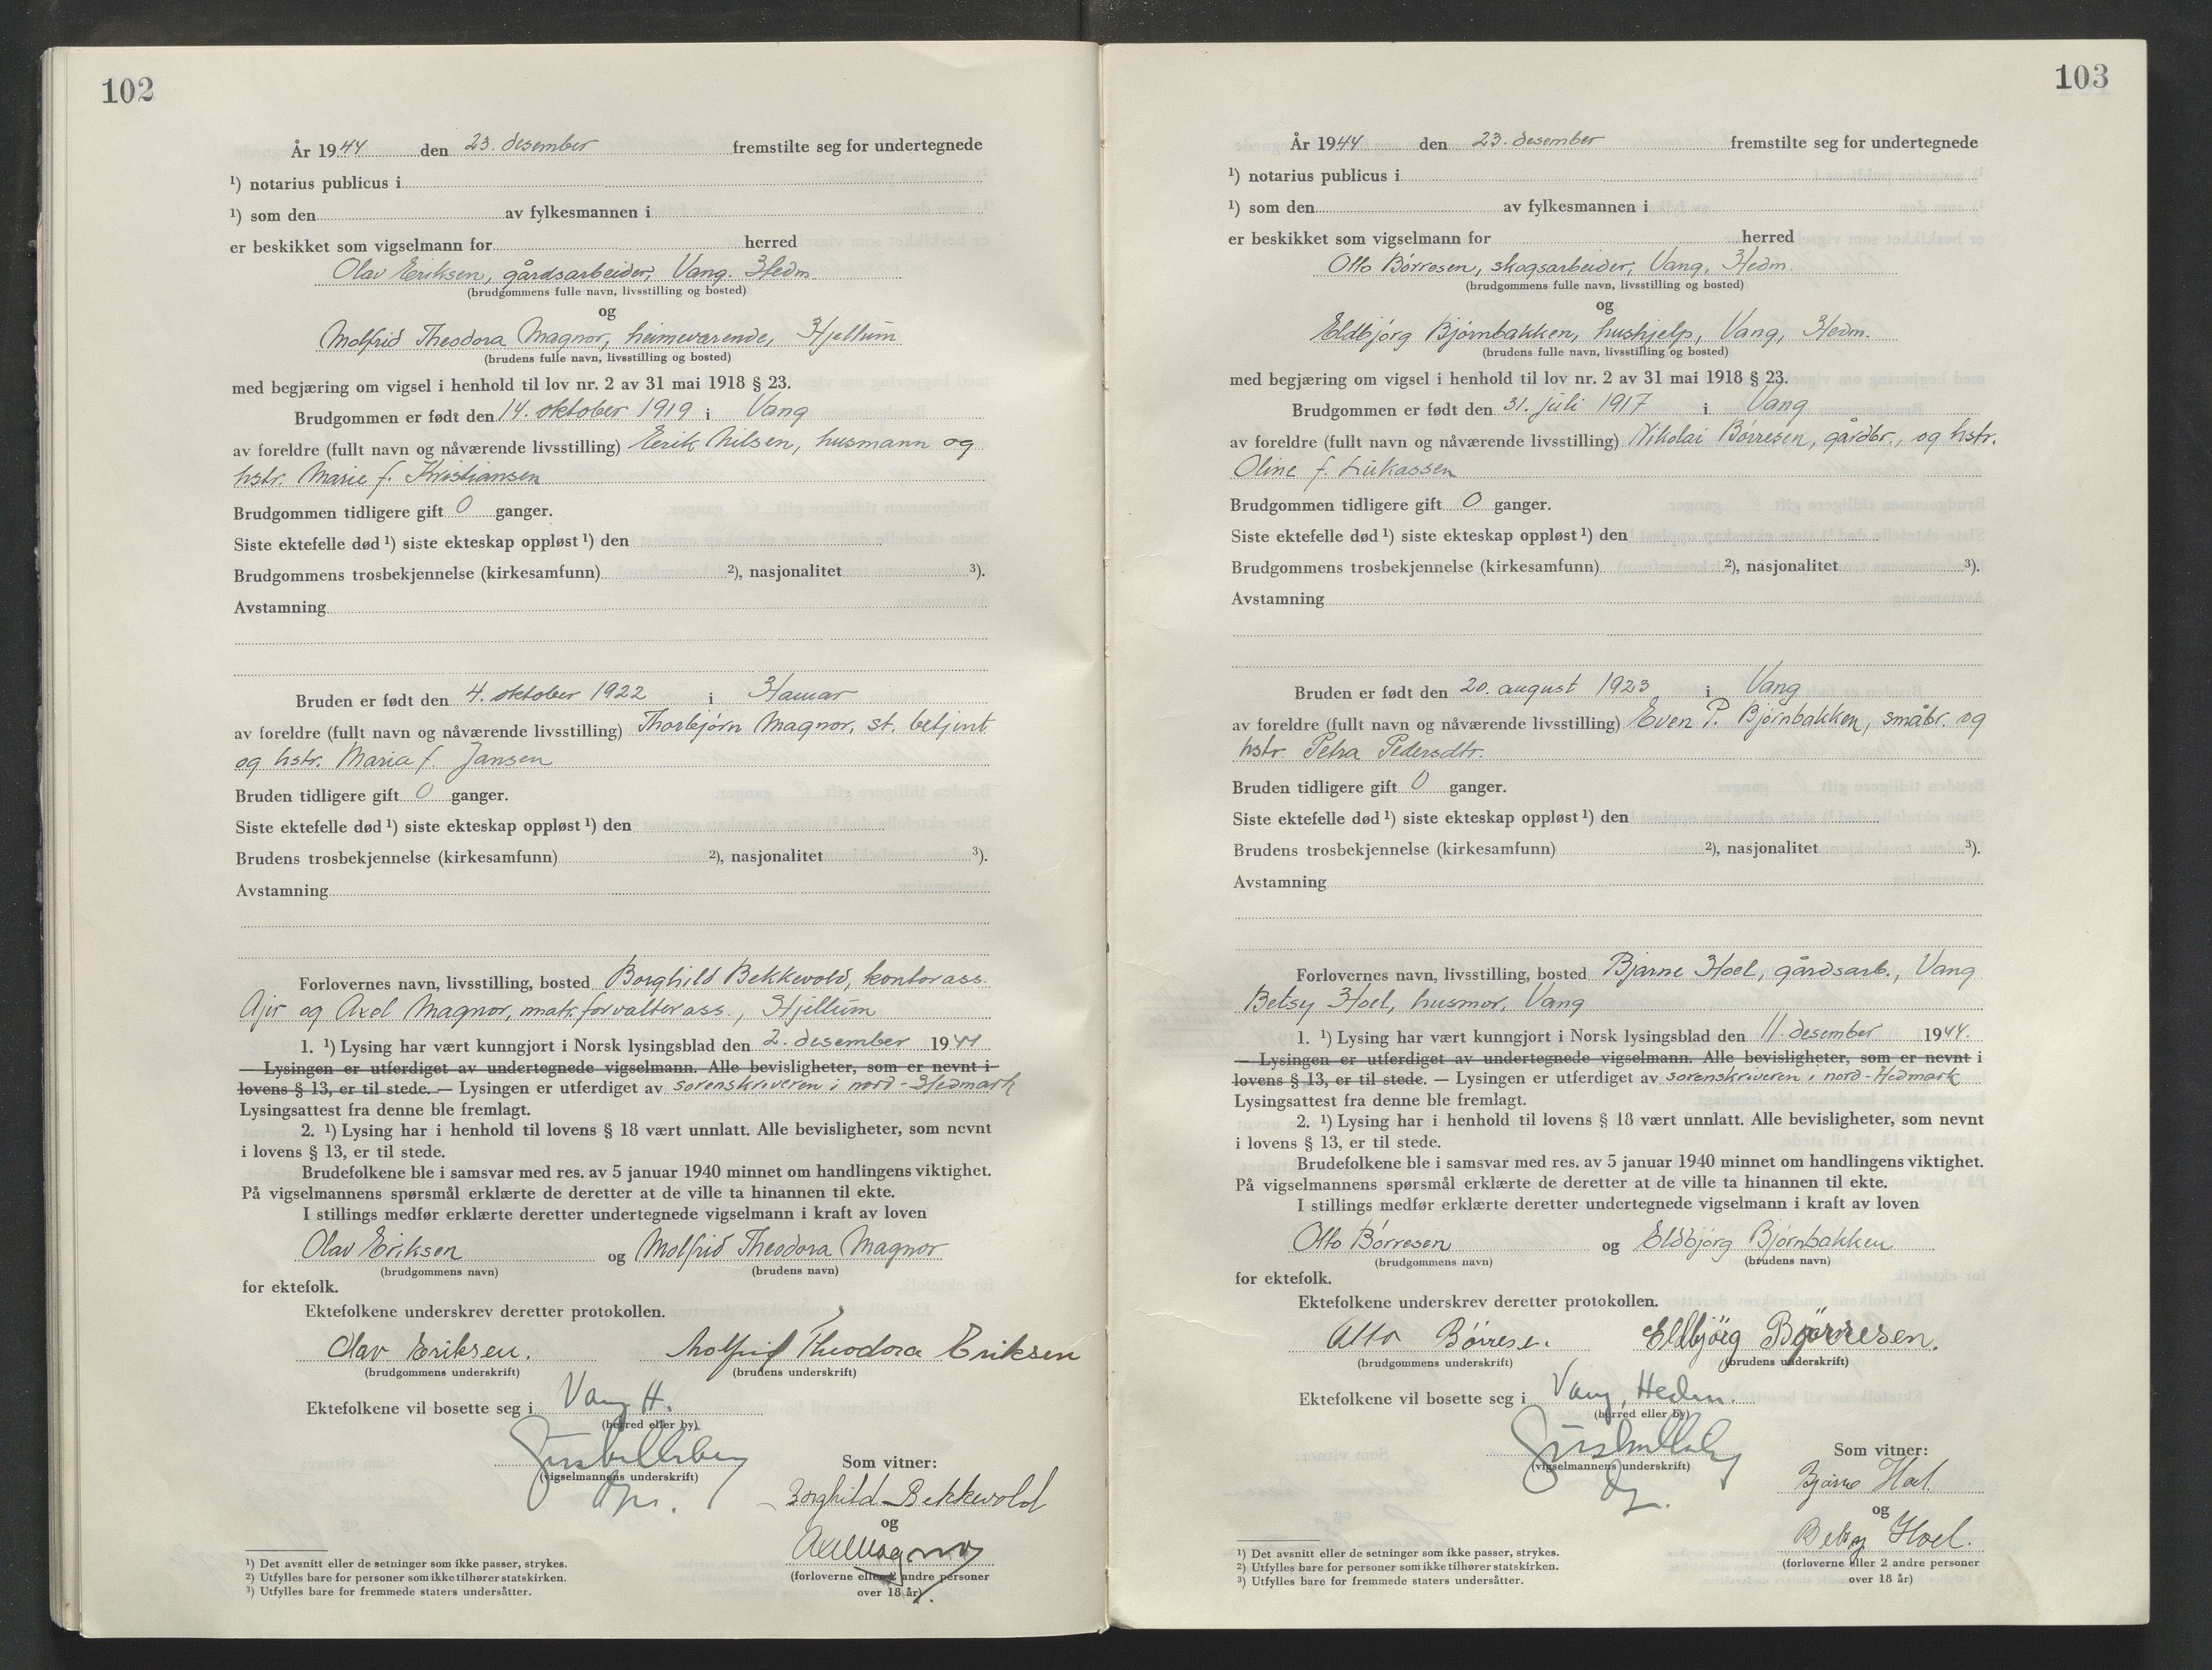 102
År 1944 den 23. desember fremstilte seg for undertegnede
¹) notarius publicus i
¹) som den av fylkesmannen i
er beskikket som vigselmann for herred
Olav Eriksen, gårdsarbeider, Vang. Hedm.
(brudgommens fulle navn, livsstilling og bosted)
og
Molfrid Theodora Magnor, heimeværende, Hjellum
(brudens fulle navn, livsstilling og bosted)
med begjæring om vigsel i henhold til lov nr. 2 av 31 mai 1918 § 23.
Brudgommen er født den 14. oktober 1919 i Vang
av foreldre (fullt navn og nåværende livsstilling) Eerik Nilsen, husmann og
hstr. Marie f. Kristiansen
Brudgommen tidligere gift 0 ganger.
Siste ektefelle død ¹) siste ekteskap oppløst ¹) den
Brudgommens trosbekjennelse (kirkesamfunn) ²), nasjonalitet ³).
Avstamning
Bruden er født den 4. oktober 1922 i Hamar
av foreldre (fullt navn og nåværende livsstilling) Thorbjørn Magnor, st. betjent
og hstr. Maria f. Jansen
Bruden tidligere gift 0 ganger.
Siste ektefelle død ¹) siste ekteskap oppløst ¹) den
Brudens trosbekjennelse (kirkesamfunn) ²), nasjonalitet ³).
Avstamning
Forlovernes navn, livsstilling, bosted Borghild Bekkevold, kontorass.
og Axel Magnor, mat.forvalterass., Hjellum
1. ¹) Lysing har vært kunngjort i Norsk lysingsblad den 2. desember 1944
— Lysingen er utferdiget av undertegnede vigselmann. Alle bevisligheter, som er nevnt i
lovens § 13, er til stede. — Lysingen er utferdiget av sorenskriveren i nord-Hedmark
Lysingsattest fra denne ble fremlagt.
2. ¹) Lysing har i henhold til lovens § 18 vært unnlatt. Alle bevisligheter, som nevnt
i lovens § 13, er til stede.
Brudefolkene ble i samsvar med res. av 5 januar 1940 minnet om handlingens viktighet.
På vigselmannens spørsmål erklærte de deretter at de ville ta hinannen til ekte.
I stillings medfør erklærte deretter undertegnede vigselmann i kraft av loven
Olav Eriksen og Molfrid Theodora Magnor
(brudgommens navn) (brudens navn)
for ektefolk.
Ektefolkene underskrev deretter protokollen.
Olav Eriksen. Molfrid Theodora Eriksen
(brudgommens underskrift) (brudens underskrift)
Ektefolkene vil bosette seg i Vang H.
(herred eller by)
(vigselmannens underskrift)
Som vitner:
Borghild Bekkevold
og
Axel Magnor
(forloverne eller 2 andre personer
over 18 år)
¹) Det avsnitt eller de setninger som ikke passer, strykes.
²) Utfylles bare for personer som ikke tilhører statskirken.
³) Utfylles bare for fremmede staters undersåtter.
103
År 1944 den 23. desember fremstilte seg for undertegnede
¹) notarius publicus i
¹) som den av fylkesmannen i
er beskikket som vigselmann for herred
Otto Børresen, skogsarbeider, Vang, Hedm.
(brudgommens fulle navn, livsstilling og bosted)
og
Eldbjørg Bjørnbakken, hushjelp, Vang, Hedm.
(brudens fulle navn, livsstilling og bosted)
med begjæring om vigsel i henhold til lov nr. 2 av 31 mai 1918 § 23.
Brudgommen er født den 31. juli 1917 i Vang
av foreldre (fullt navn og nåværende livsstilling) Nikolai Børresen, gårdbr., og hstr.
Oline f. Lukassen
Brudgommen tidligere gift 0 ganger.
Siste ektefelle død ¹) siste ekteskap oppløst ¹) den
Brudgommens trosbekjennelse (kirkesamfunn) ²), nasjonalitet ³).
Avstamning
Bruden er født den 20. august 1923 i Vang
av foreldre (fullt navn og nåværende livsstilling) Even P. Bjørnbakken, småbr. og
hstr. Petra Pedersdtr.
Bruden tidligere gift 0 ganger.
Siste ektefelle død ¹) siste ekteskap oppløst ¹) den
Brudens trosbekjennelse (kirkesamfunn) ²), nasjonalitet ³).
Avstamning
Forlovernes navn, livsstilling, bosted Bjarne Hoel, gårdsarb., Vang
Betsy Hoel, husmor, Vang
1. ¹) Lysing har vært kunngjort i Norsk lysingsblad den 11. desember 1944.
— Lysingen er utferdiget av undertegnede vigselmann. Alle bevisligheter, som er nevnt i
lovens § 13, er til stede. — Lysingen er utferdiget av sorenskriveren i nord-Hedmark
Lysingsattest fra denne ble fremlagt.
2. ¹) Lysing har i henhold til lovens § 18 vært unnlatt. Alle bevisligheter, som nevnt
i lovens § 13, er til stede.
Brudefolkene ble i samsvar med res. av 5 januar 1940 minnet om handlingens viktighet.
På vigselmannens spørsmål erklærte de deretter at de ville ta hinannen til ekte.
I stillings medfør erklærte deretter undertegnede vigselmann i kraft av loven
Otto Børresen og Eldbjørg Bjørnbakken
(brudgommens navn) (brudens navn)
for ektefolk.
Ektefolkene underskrev deretter protokollen.
Otto Børresen Eldbjörg Börresen.
(brudgommens underskrift) (brudens underskrift)
Ektefolkene vil bosette seg i Vang, Hedm.
(herred eller by)
(vigselmannens underskrift)
Som vitner:
Bjarne Hoel.
og
Betsy Hoel.
(forloverne eller 2 andre personer
over 18 år)
¹) Det avsnitt eller de setninger som ikke passer, strykes.
²) Utfylles bare for personer som ikke tilhører statskirken.
³) Utfylles bare for fremmede staters undersåtter.